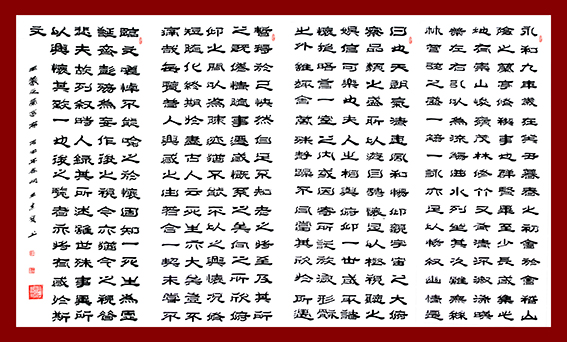 永和九年歲在癸丑暮春之初會於會稽山
陰之蘭亭脩禊事也群賢畢至少長咸集此
地有崇山峻嶺茂林修竹又有清流激湍映
帶左右引以為流觴曲水列坐其次雖無絲
竹管弦之盛一觴一詠亦足以暢敘幽情是
日也天朗氣清惠風和暢仰觀宇宙之大俯
察品類之盛所以遊目騁懷足以極視聽之
娛信可樂也夫人之相與俯仰一世或取諸
懷抱悟言一室之內或因寄所託放浪形骸
之外雖趣舍萬殊靜躁不同當其欣於所遇
暫得於己快然自足不知老之將至及其所
之既倦情隨事遷感慨係之矣向之所欣俯
仰之間以為陳跡猶不能不以之興懷況修
短隨化終期於盡古人云死生亦大矣豈不
痛哉每覽昔人興感之由若合一契未嘗不
臨文嗟悼不能喻之於懷固知一死生為虛
誕齊彭殤為妄作後之視今亦猶今之視昔
悲夫故列敘時人錄其所述雖世殊事異所
以興懷其致一也後之覽者亦將有感於斯
文
王羲之蘭亭序